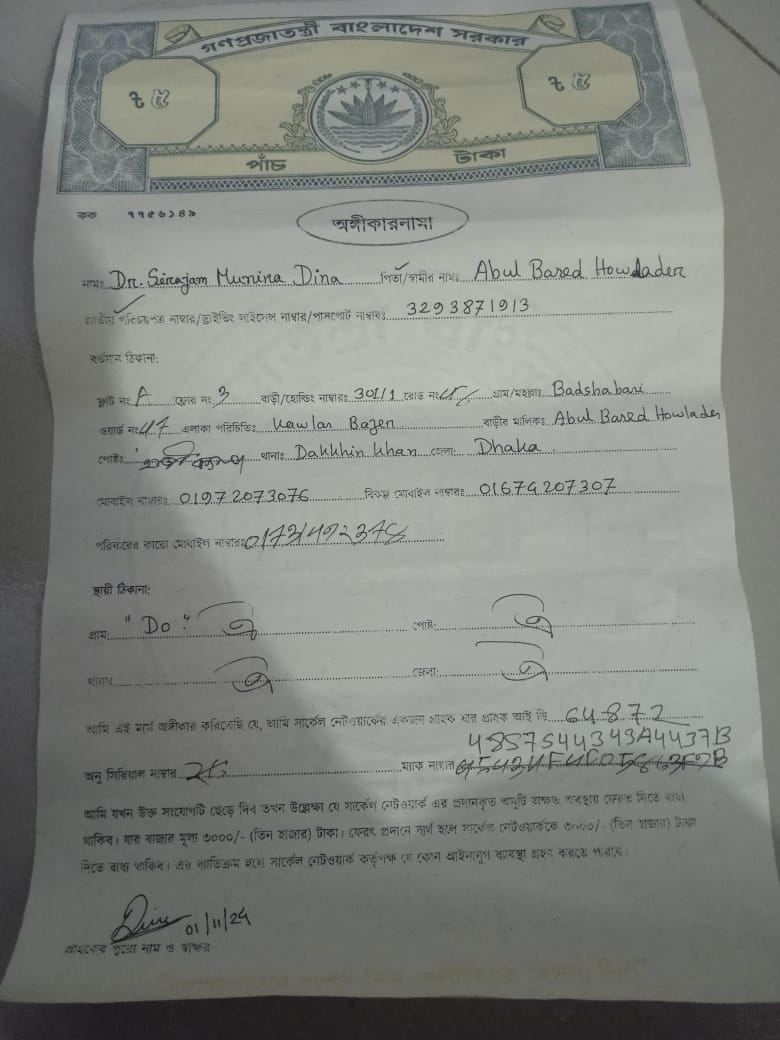 গণপ্রজাতন্ত্রী বাংলাদেশ সরকার
৳ ৫ ৳ ৫
পাঁচ টাকা
কক ৭৭৫৬১৪৯
অঙ্গীকারনামা
নামঃ Dr. Serajam Munira Dina পিতা/স্বামীর নামঃ Abul Bared Howlader
জাতীয় পরিচয়পত্র নাম্বার/ড্রাইভিং লাইসেন্স নাম্বার/পাসপোর্ট নাম্বারঃ 3293871913
বর্তমান ঠিকানা:
ফ্লাট নংঃ A ফ্লোর নংঃ 3 বাড়ী/হোল্ডিং নাম্বারঃ 301/1 রোড নংঃ গ্রাম/মহল্লাঃ Badshabari
ওয়ার্ড নংঃ 47 এলাকা পরিচিতিঃ Kawlan Bazer বাড়ীর মালিকঃ Abul Bared Howlader
পোষ্টঃ থানাঃ Dakkhin Khan জেলাঃ Dhaka
মোবাইল নাম্বারঃ 01972073076 বিকল্প মোবাইল নাম্বারঃ 01674207307
পরিবারের কারো মোবাইল নাম্বারঃ
স্থায়ী ঠিকানা:
গ্রাম: "Do" ঐ পোষ্ট: ঐ
থানাঃ ঐ জেলা: ঐ
আমি এই মর্মে অঙ্গীকার করিতেছি যে, আমি সার্কেল নেটওয়ার্কের একজন গ্রাহক যার গ্রাহক আই ডি 64872
4857544343A4437B
অনু সিরিয়াল নাম্বার ম্যাক নাম্বার
আমি যখন উক্ত সংযোগটি ছেড়ে দিব তখন উল্লেক্ষ্য যে সার্কেল নেটওয়ার্ক এর প্রদানকৃত অনুটি অক্ষত অবস্থায় ফেরত দিতে বাধ্য
থাকিব। যার বাজার মূল্য ৩০০০/- (তিন হাজার) টাকা। ফেরৎ প্রদানে ব্যর্থ হলে সার্কেল নেটওয়ার্ককে ৩০০০/- (তিন হাজার) টাকা
দিতে বাধ্য থাকিব। এর ব্যতিক্রম হলে সার্কেল নেটওয়ার্ক কর্তৃপক্ষ যে কোন আইনানুগ ব্যবস্থা গ্রহণ করতে পারবে।
Dina 01/11/24
গ্রাহকের পুরো নাম ও স্বাক্ষর